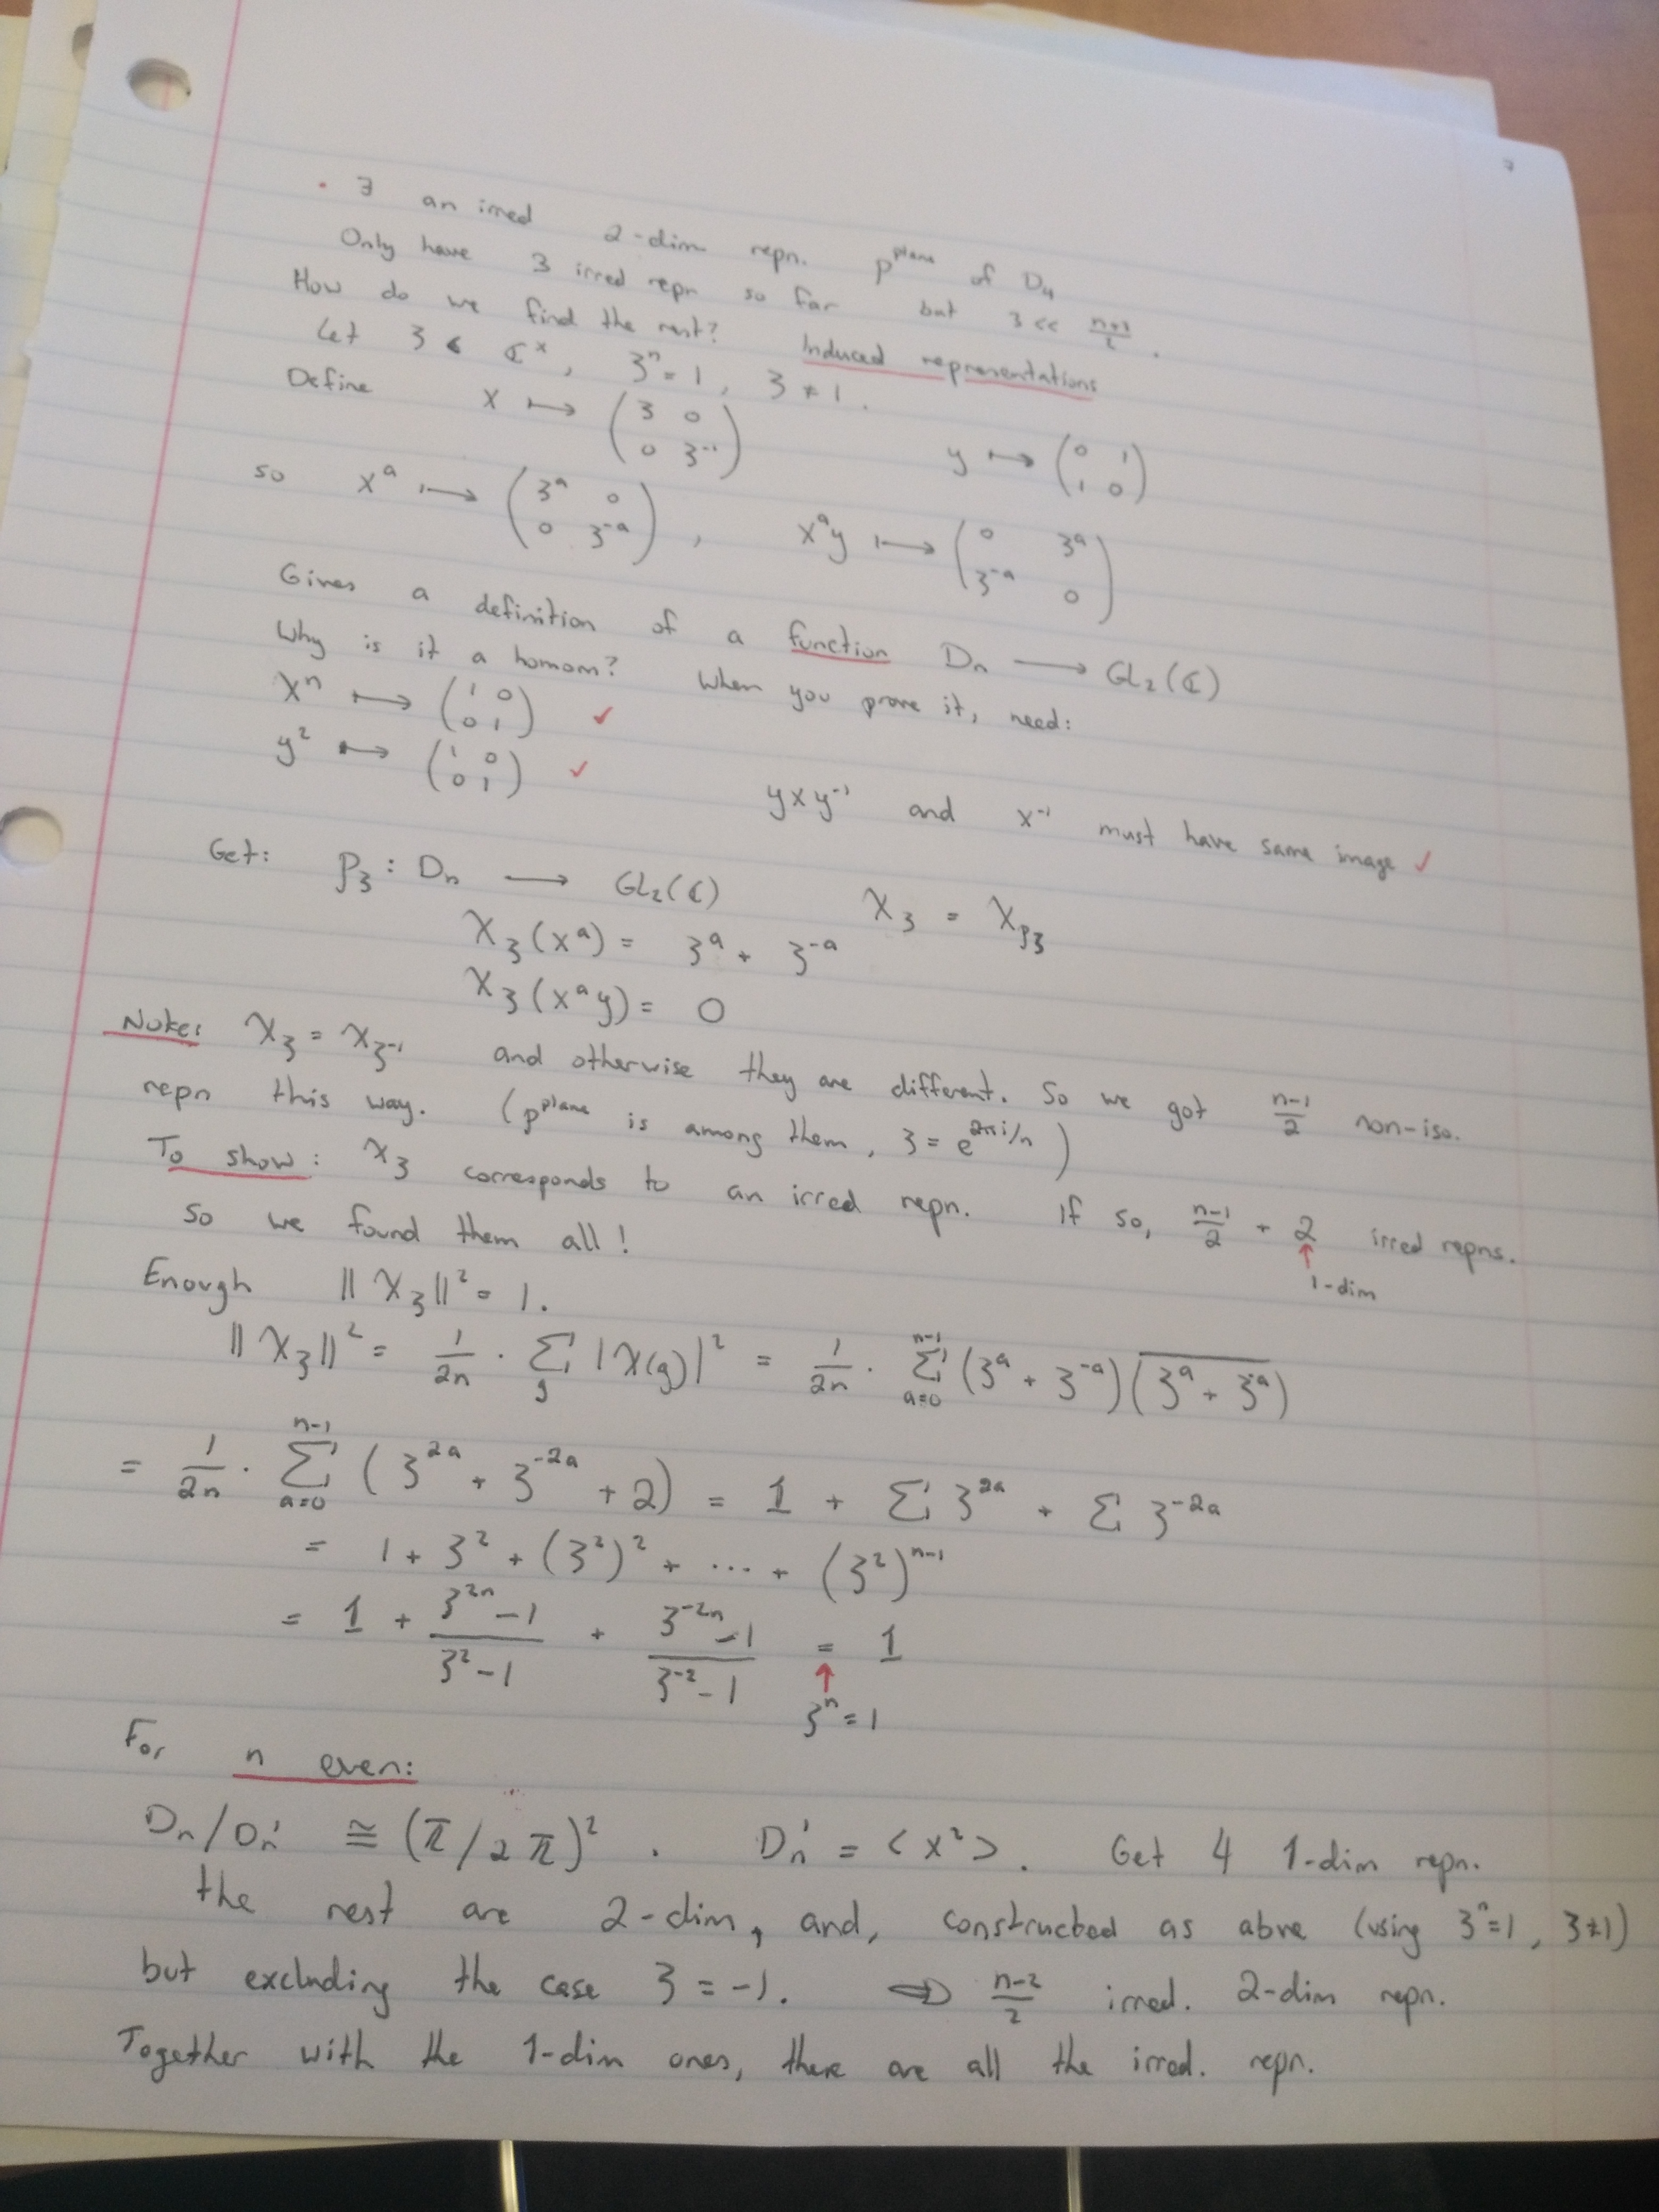 · ∃ an irred 2-dim repn. ρ^plane of Dn
Only have 3 irred repn so far but 3 << (n+3)/2 .
How do we find the rest? Induced representations
Let ζ ∈ ℂ^×, ζ^n = 1, ζ ≠ 1.
Define x ↦ (ζ 0; 0 ζ^-1) y ↦ (0 1; 1 0)
so x^a ↦ (ζ^a 0; 0 ζ^-a), x^a y ↦ (0 ζ^a; ζ^-a 0)
Gives a definition of a function Dn ⟶ GL₂(ℂ)
Why is it a homom? When you prove it, need:
x^n ↦ (1 0; 0 1) ✓
y² ↦ (1 0; 0 1) ✓ y x y^-1 and x^-1 must have same image ✓
Get: ρ_ζ : Dn ⟶ GL₂(ℂ) χ_ζ = χ_ρζ
χ_ζ(x^a) = ζ^a + ζ^-a
χ_ζ(x^a y) = 0
Note: χ_ζ = χ_ζ^-1 and otherwise they are different. So we got (n-1)/2 non-iso.
repn this way. (ρ^plane is among them, ζ = e^{2πi/n})
To show: χ_ζ corresponds to an irred repn. If so, (n-1)/2 + 2 irred repns.
↑ 1-dim
So we found them all!
Enough ||χ_ζ||² = 1.
||χ_ζ||² = 1/2n · Σ_g |χ(g)|² = 1/2n · Σ_{a=0}^{n-1} (ζ^a + ζ^-a)(\overline{ζ^a + ζ^-a})
= 1/2n · Σ_{a=0}^{n-1} (ζ^2a + ζ^-2a + 2) = 1 + Σ ζ^2a + Σ ζ^-2a
= 1 + ζ² + (ζ²)² + ··· + (ζ²)^{n-1}
= 1 + (ζ^2n - 1)/(ζ² - 1) + (ζ^-2n - 1)/(ζ^-2 - 1) = 1
↑ ζ^n = 1
For n even:
Dn/Dn' ≅ (ℤ/2ℤ)² . Dn' = <x²>. Get 4 1-dim repn.
the rest are 2-dim, and, constructed as above (using ζ^n=1, ζ≠1)
but excluding the case ζ = -1. ⇒ (n-2)/2 irred. 2-dim repn.
Together with the 1-dim ones, there are all the irred. repn.